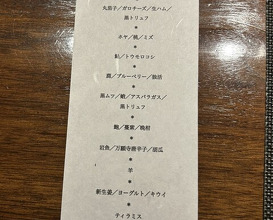 丸茄子／ガロチーズ／生ハム／
黒トリュフ
＊
ホヤ／桃／ミズ
＊
鮎／トウモロコシ
＊
鰻／ブルーベリー／独活
＊
黒ムツ／蛸／アスパラガス／
黒トリュフ
＊
鮑／蕃茄／
＊
岩魚／万願寺唐辛子／胡瓜
＊
羊
＊
新生姜／ヨーグルト／キウイ
＊
ティラミス